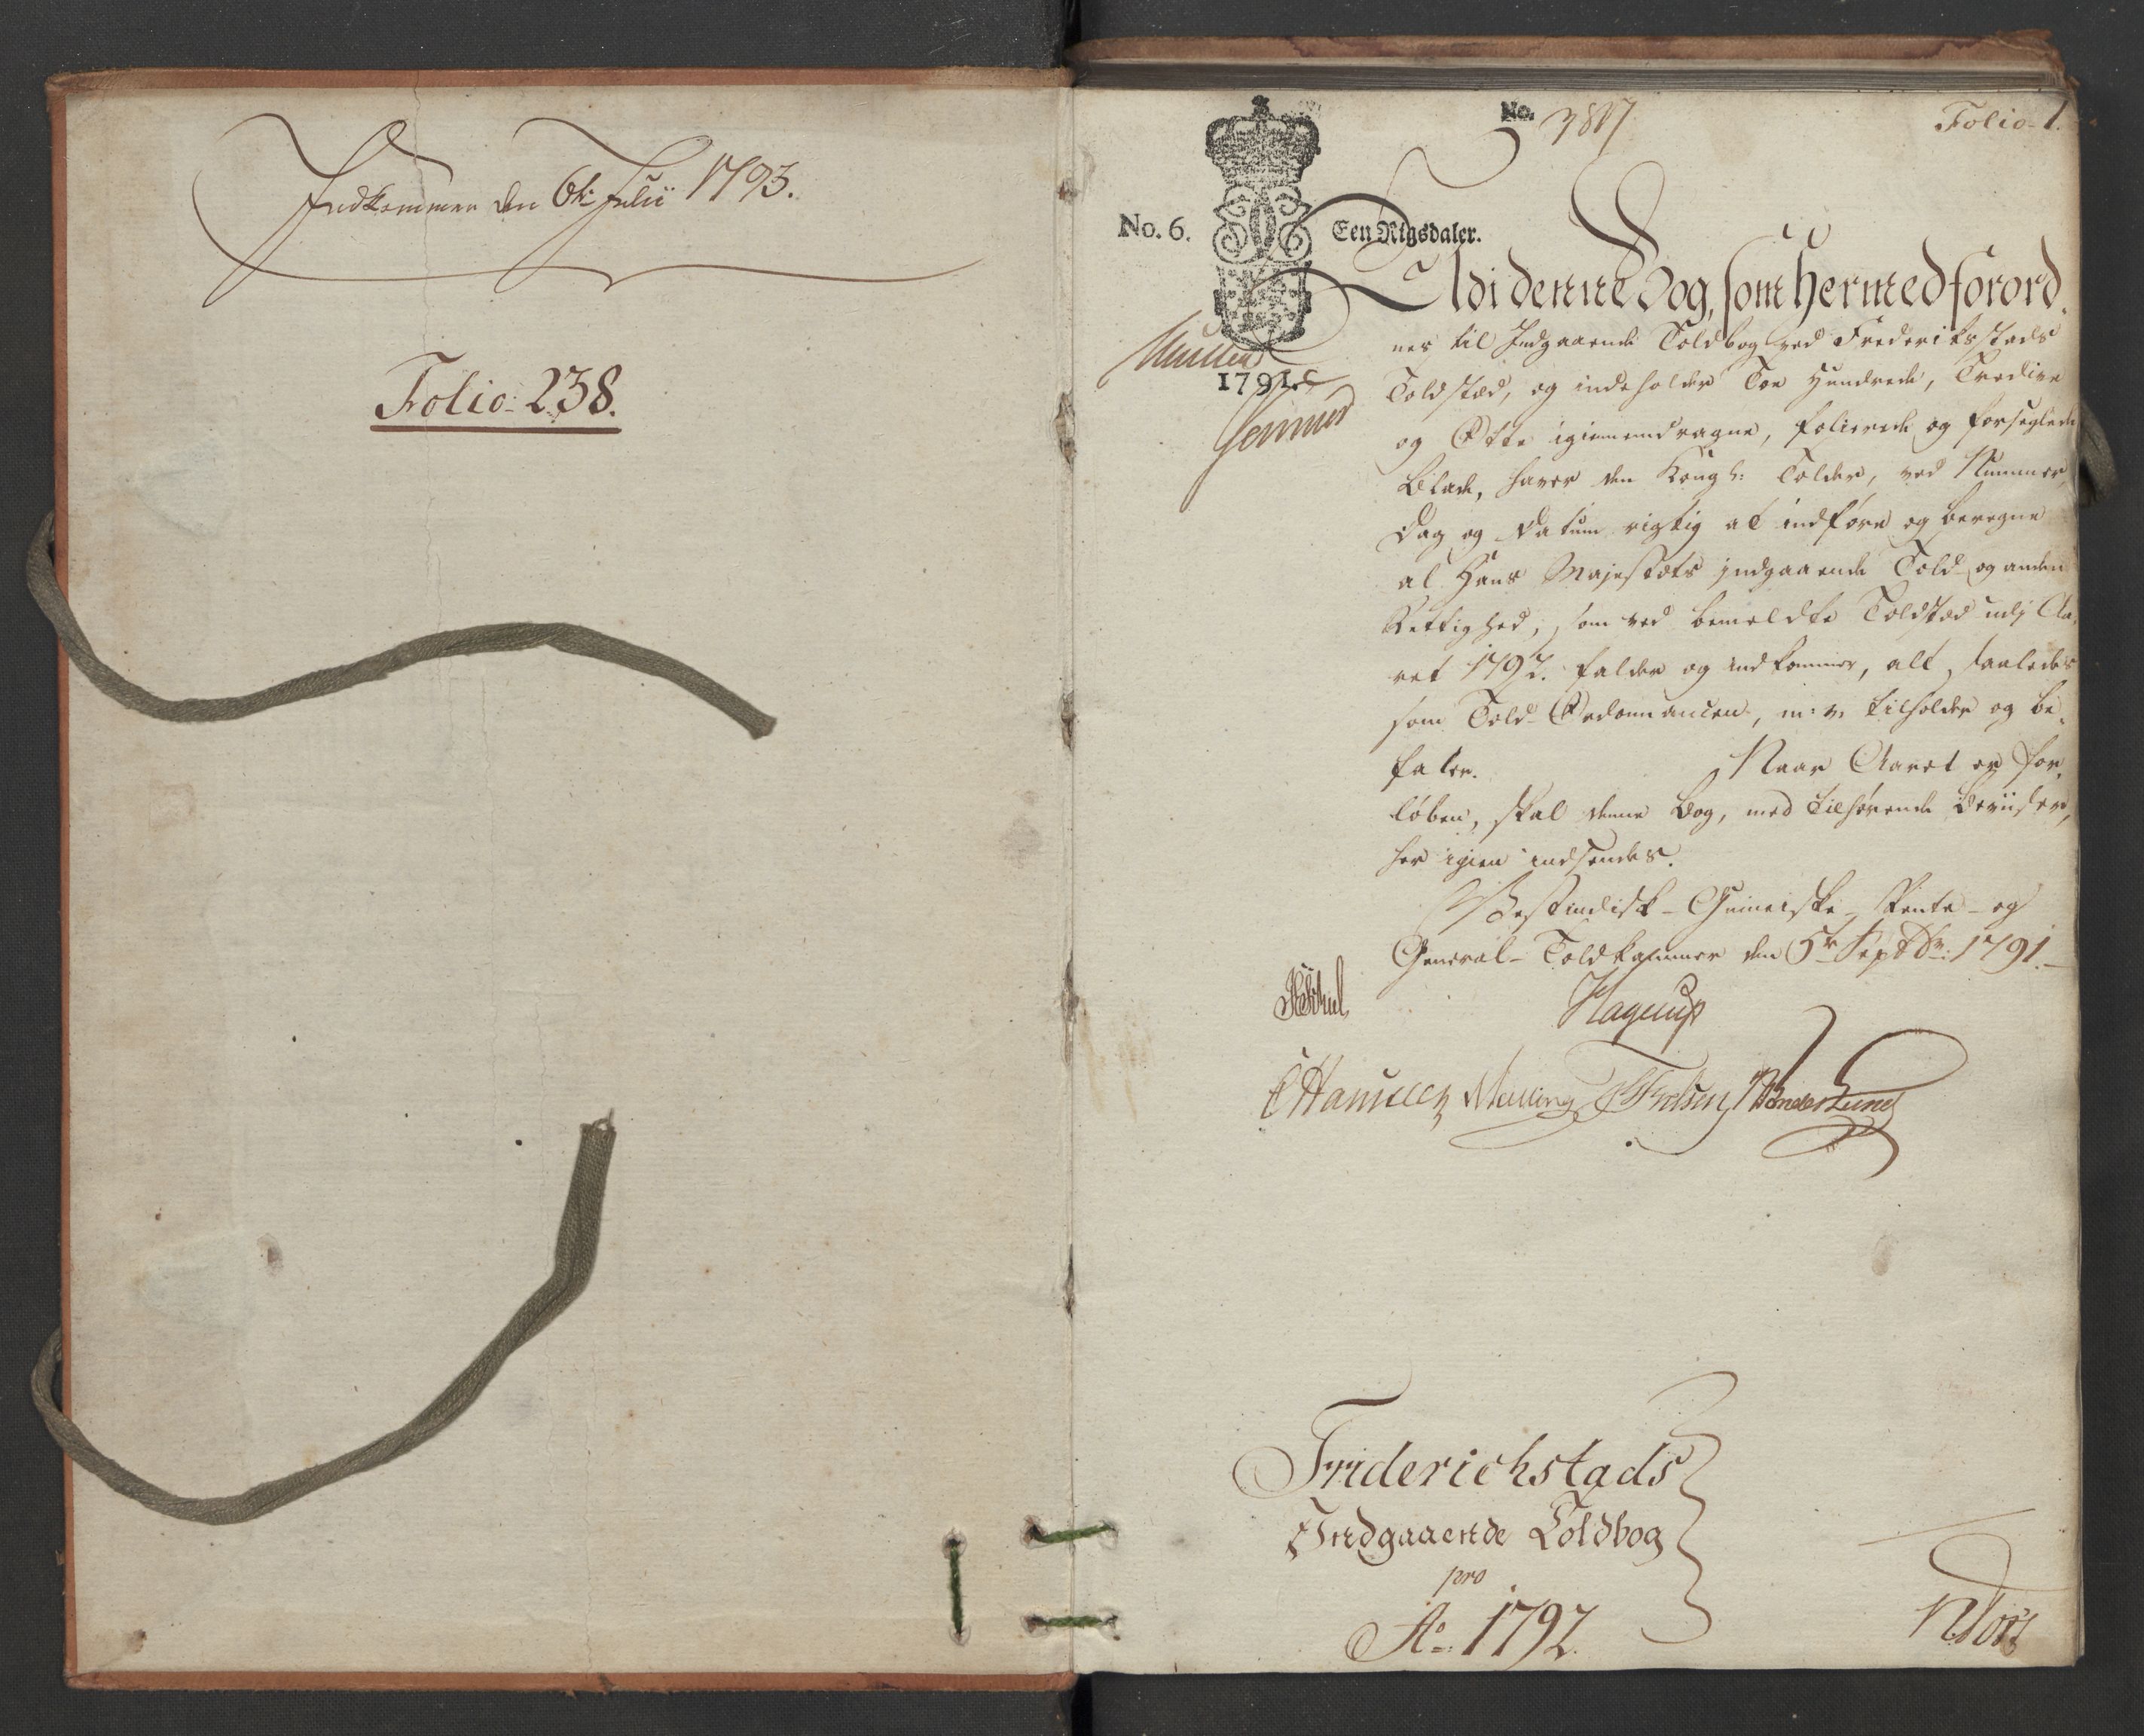 Indkommen den 6te Julii 1793.
Folio: 238.
No. 3817
Folio 1.
No. 6.
Een Rigsdaler.
1791
Udi denne Bog, som hermed forord,
nes til Indgaaende Toldbog ved Frederiksstads
Toldstæd, og indeholder Toe Hundrede, Tredive
og Otte igiennemdragne, folierede og forseglede
Blade, haver den Kongl: Tolder, ved Nummer,
Dag og Datum rigtig at indføre og beregne
al Hans Majestæts indgaaende Told og anden
Rettighed, som ved bemeldte Toldsted udj Aa,
ret 1792. falder og indkommer, alt saaledes
som Told-Ordonnancen, m: v: tilholder og be,
faler. Naar Aaret er for,
løben, skal denne Bog, med tilhørende Beviiser,
her igien indsendes.
Vestindisk-Guineiske-Rente- og
General-Toldkammer den 5te Septbr: 1791.
Hagerup
Hansteen
Friderichstads
Indgaaende Toldbog
pro
Ao: 1792.